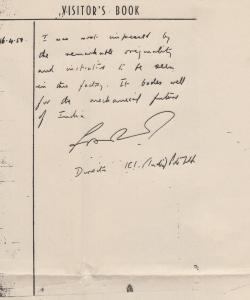 VISITOR'S BOOK
I was most impressed by
the remarkable originality
and initiative to be seen
in this factory. It bodes well
for the mechanised future
of India
Director ICI (India) Pvte Ltd